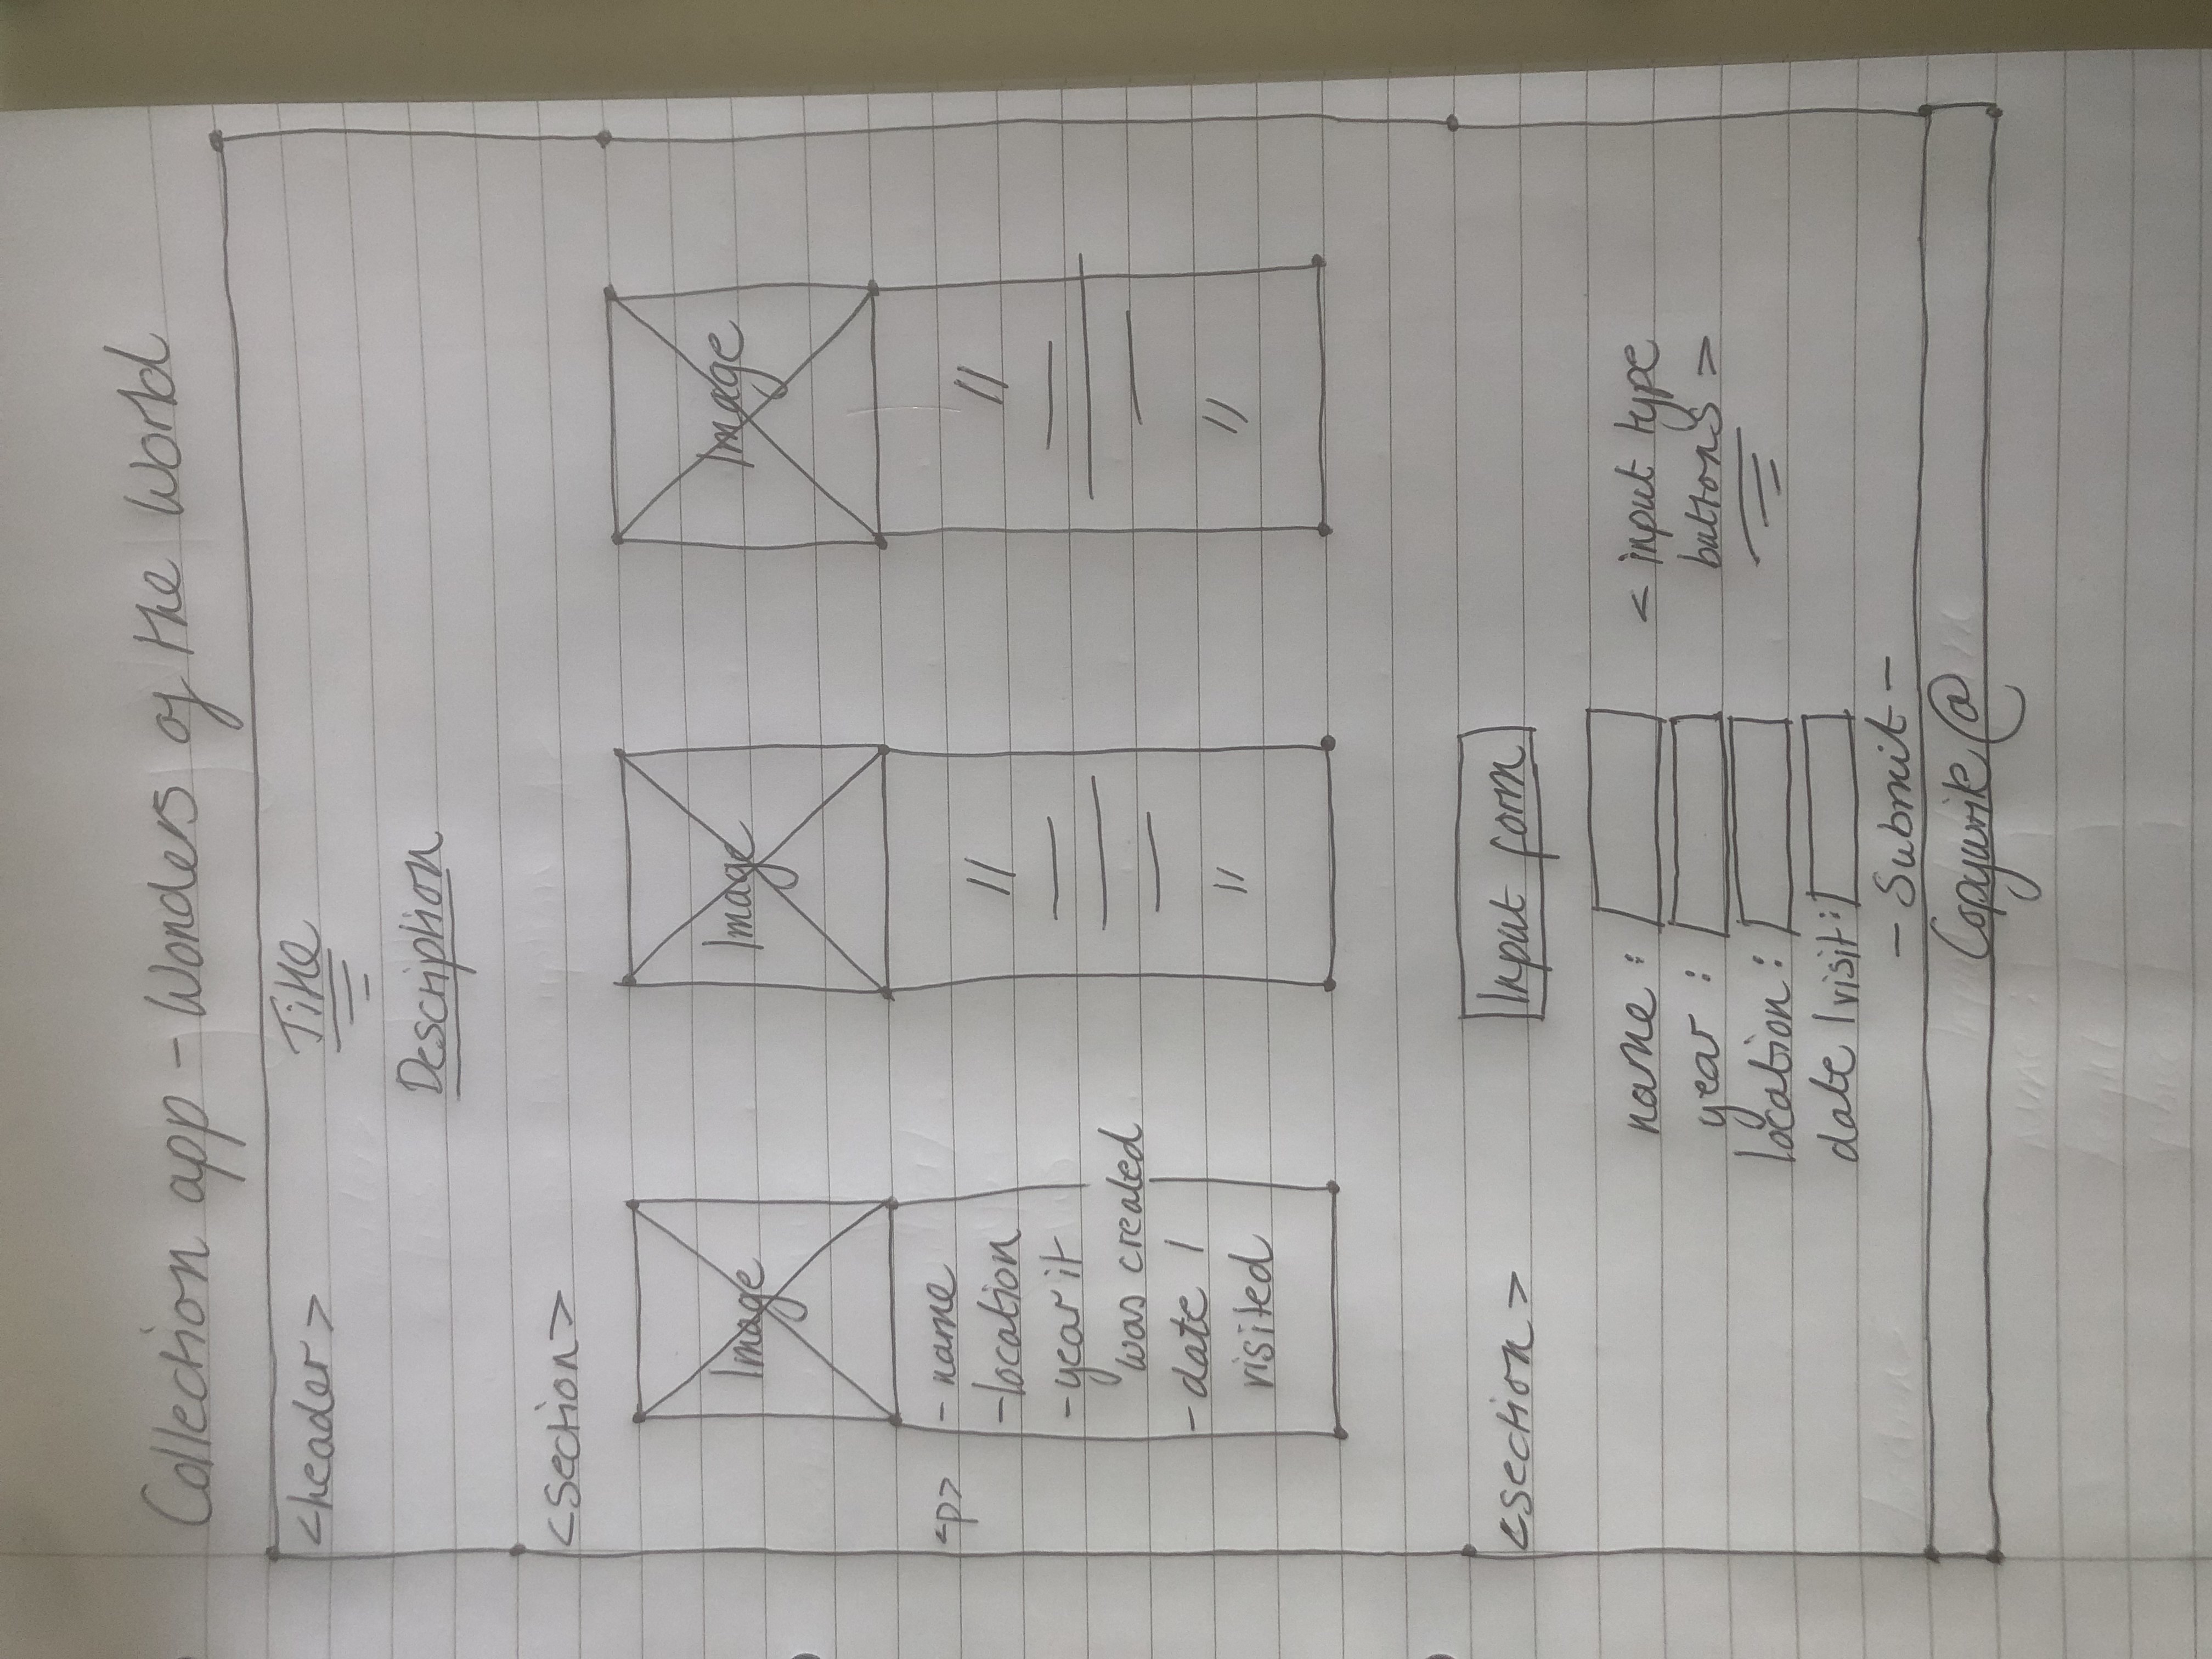 Collection app - Wonders of the World
<header>
Title
Description
<section>
Image
Image
Image
<p>
- name
- location
- year it
was created
- date I
visited
//
//
//
//
<section>
Input form
name :
year :
location :
date I visit :
< input type
buttons >
- Submit -
Copywrite @